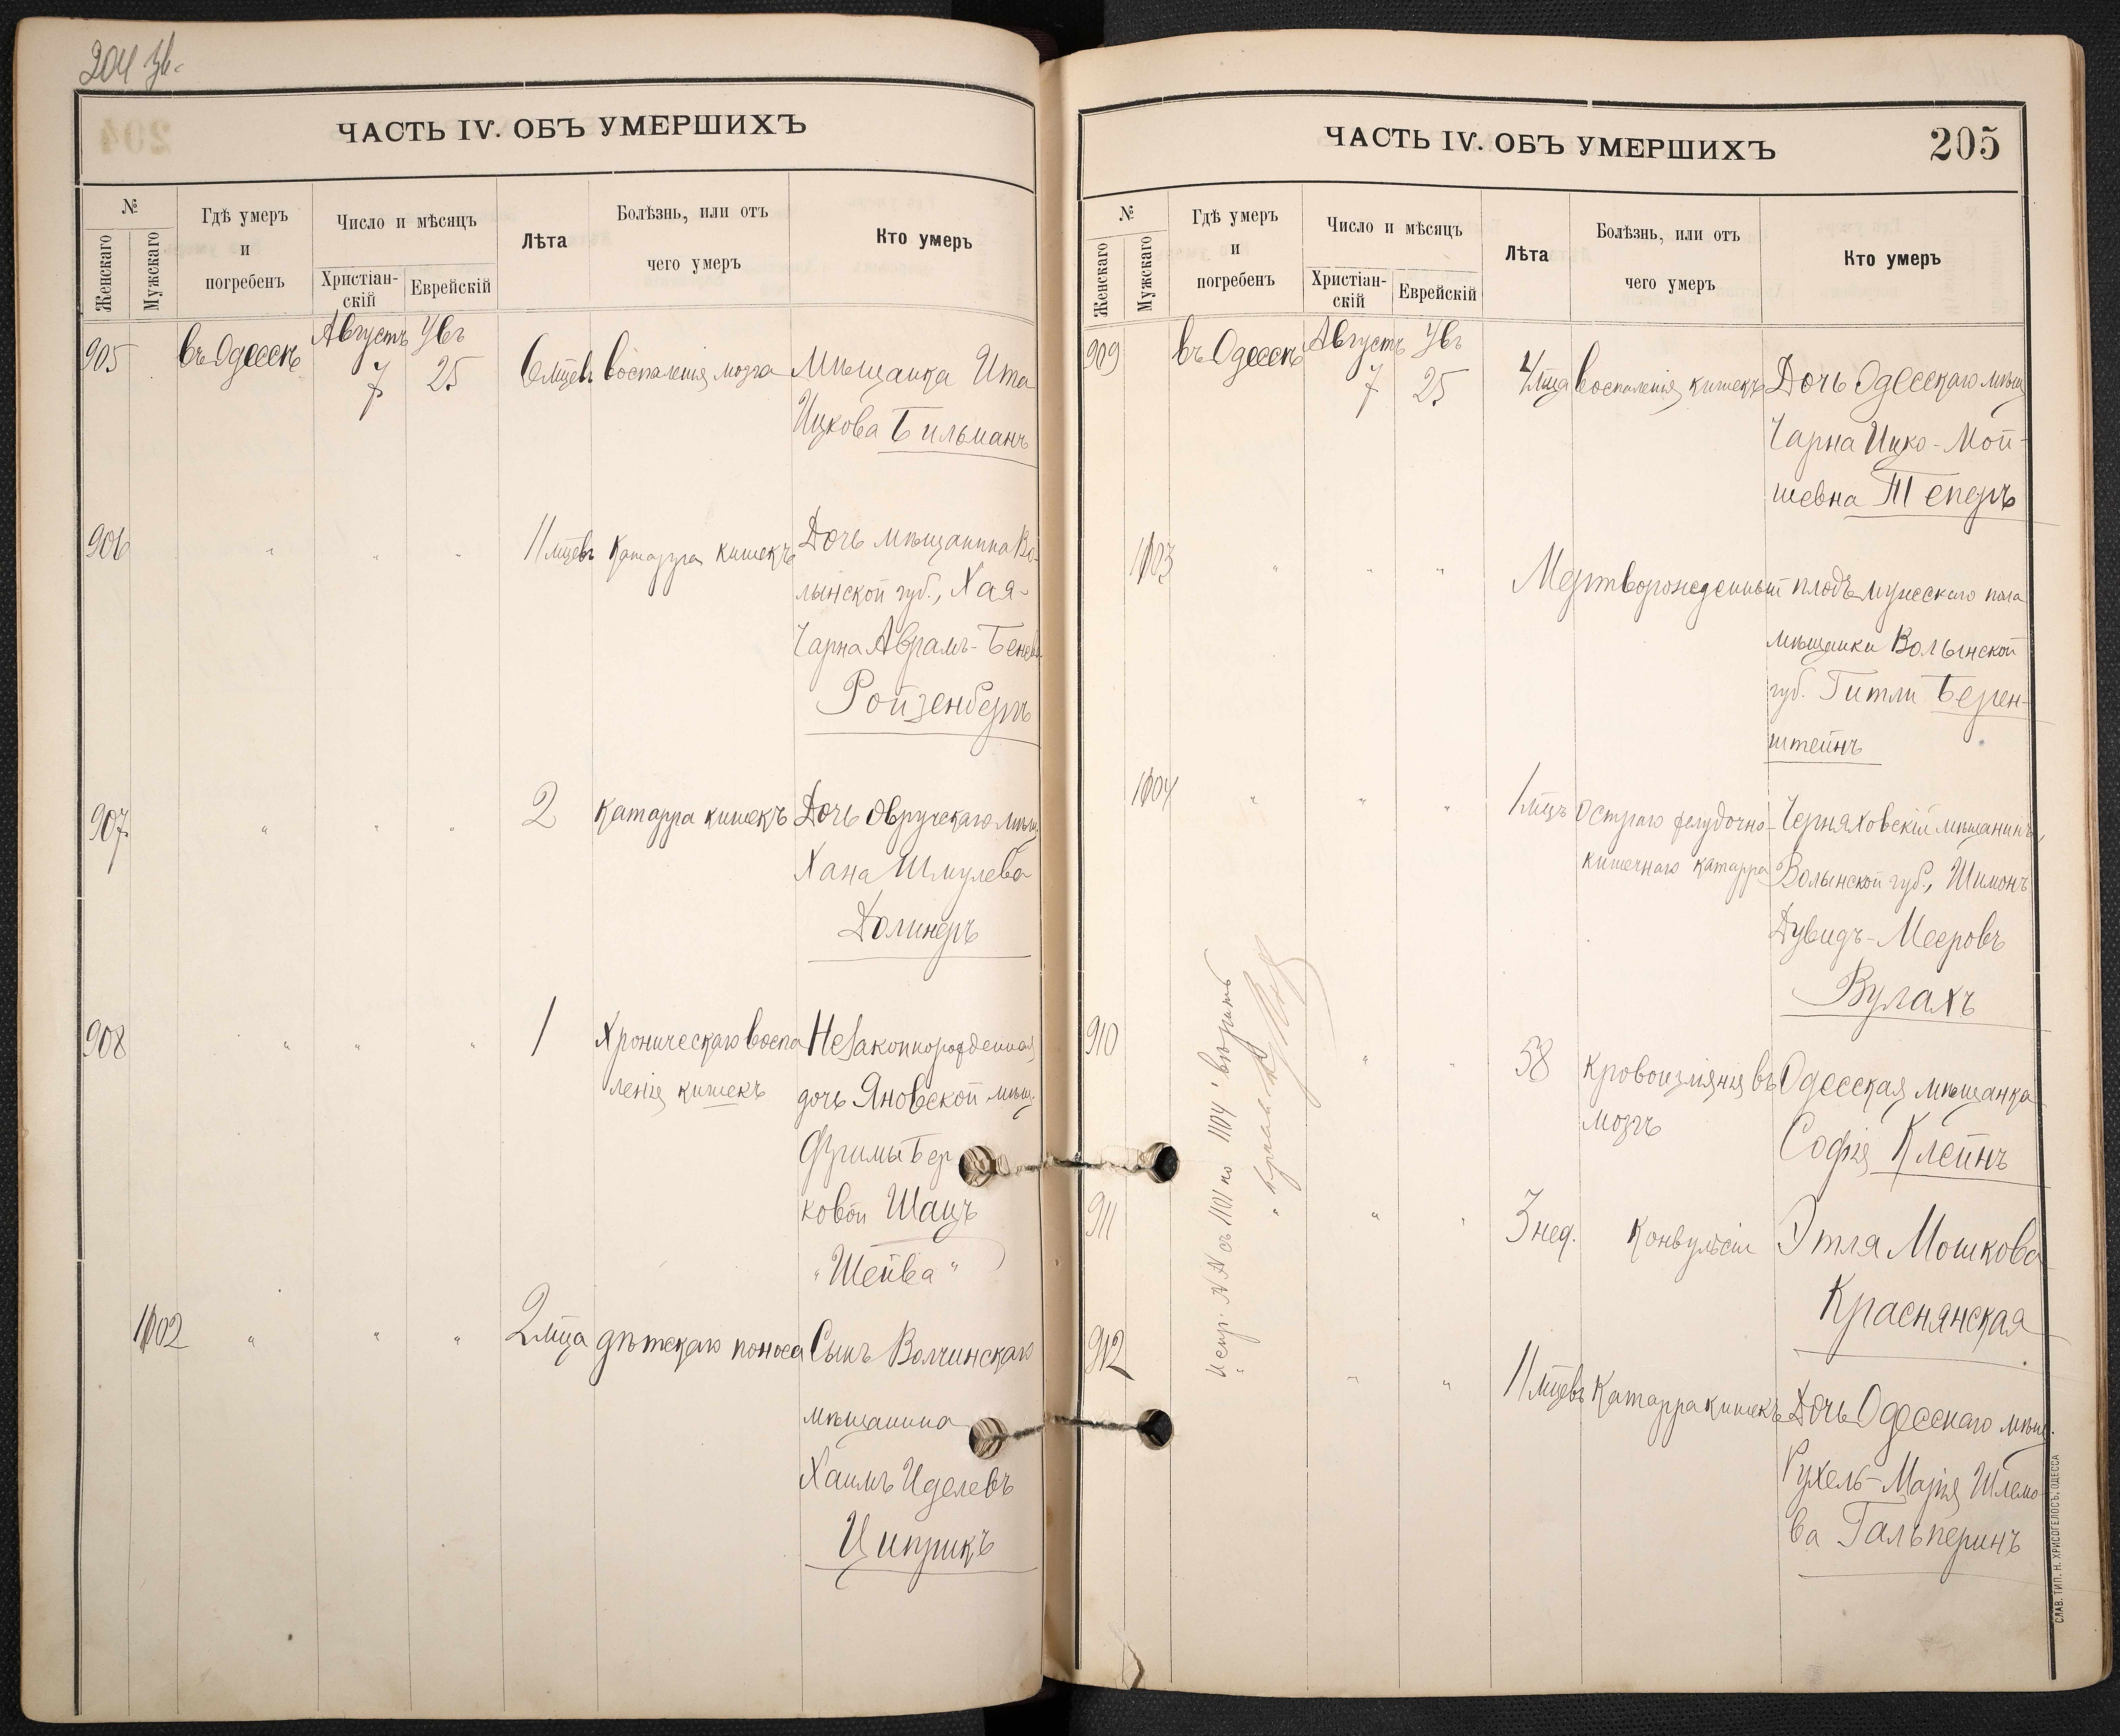 204 зв.
ЧАСТЬ IV. ОБЪ УМЕРШИХЪ
№
Женскаго
Мужскаго
Гдѣ умеръ
и
погребенъ
Число и мѣсяцъ
Христіан-
скій
Еврейскій
Лѣта
Болѣзнь, или отъ
чего умеръ
Кто умеръ
905 въ Одессѣ Августъ 7 25 6 мцевъ воспаленія мозга Мѣщанка Ита
Ицкова Бильманъ
906 " " " 11 мцевъ Катарра кишекъ Дочь мѣщанина Во-
лынской губ., Хая-
Чарна Аврамъ-
Ройзенбергъ
907 " " " 2 Катарра кишекъ Дочь Овручскаго мѣщ.
Хана Шмулева
Долингеръ
908 " " " 1 Хроническаго воспа Незаконнорожденная
ленія кишекъ дочь Яновской мѣщ.
Фримы Бер
ковой Шацъ
"Шейва"
1102 " " " 2 мца дѣтскаго поноса Сынъ Волчинскаго
мѣщанина
Хаимъ Иделевъ
Циприкъ
ЧАСТЬ IV. ОБЪ УМЕРШИХЪ
205
№
Женскаго
Мужскаго
Гдѣ умеръ
и
погребенъ
Число и мѣсяцъ
Христіан-
скій
Еврейскій
Лѣта
Болѣзнь, или отъ
чего умеръ
Кто умеръ
909 въ Одессѣ Августъ 7 25 4 мца воспаленія кишекъ Дочь Одесскаго мѣщ
Чарна Ицко-Мой-
шевна Теперъ
1103 " " " Мертворожденный плодъ мужескаго пола
мѣщанки Волынской
губ. Гитли Берен-
штейнъ
1104 " " " 1 мцъ Остраго желудочно- Черняховскій мѣщанинъ,
кишечнаго катарра Волынской губ., Шимонъ
Дувидъ-Мееровъ
Вулахъ
910 " " 58 Кровоизліянія въ Одесская мѣщанка
мозгъ Софія Клейнъ
911 " " " 3 нед. Конвульсіи Этля Мошкова
Краснянская
912 " " 11 мцевъ Катарра кишекъ Дочь Одесскаго мѣщ.
Рухель-Марія Шлемо-
ва Гальперинъ
"Испр. №№ съ 1101 по 1104" вѣрить
СЛАВ. ТИП. Н. ХРИСОГЕЛОСЪ, ОДЕССА